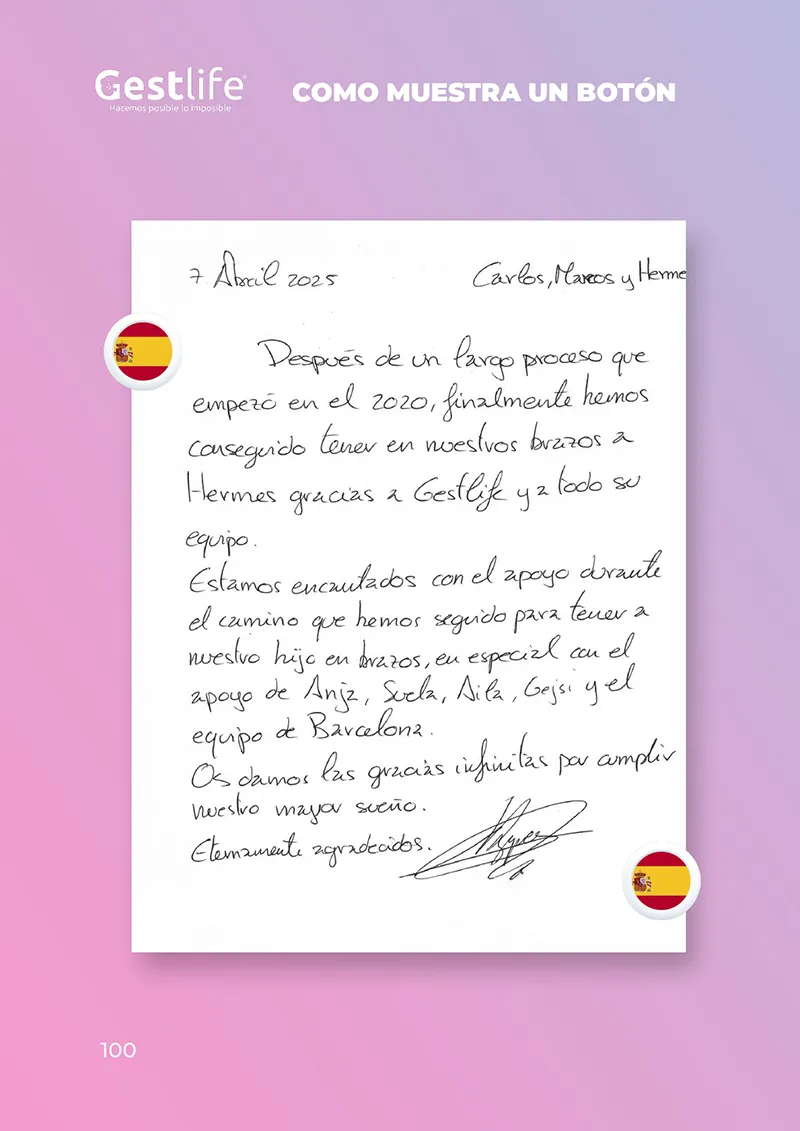 Gestlife
Hacemos posible lo imposible
COMO MUESTRA UN BOTÓN
7 Abril 2025
Carlos, Marcos y Herme
Después de un largo proceso que
empezó en el 2020, finalmente hemos
conseguido tener en nuestros brazos a
Hermes gracias a Gestlife y a todo su
equipo.
Estamos encantados con el apoyo durante
el camino que hemos seguido para tener a
nuestro hijo en brazos, en especial con el
apoyo de Anja, Suela, Aila, Gejsi y el
equipo de Barcelona.
Os damos las gracias infinitas por cumplir
nuestro mayor sueño.
Eternamente agradecidos.
100